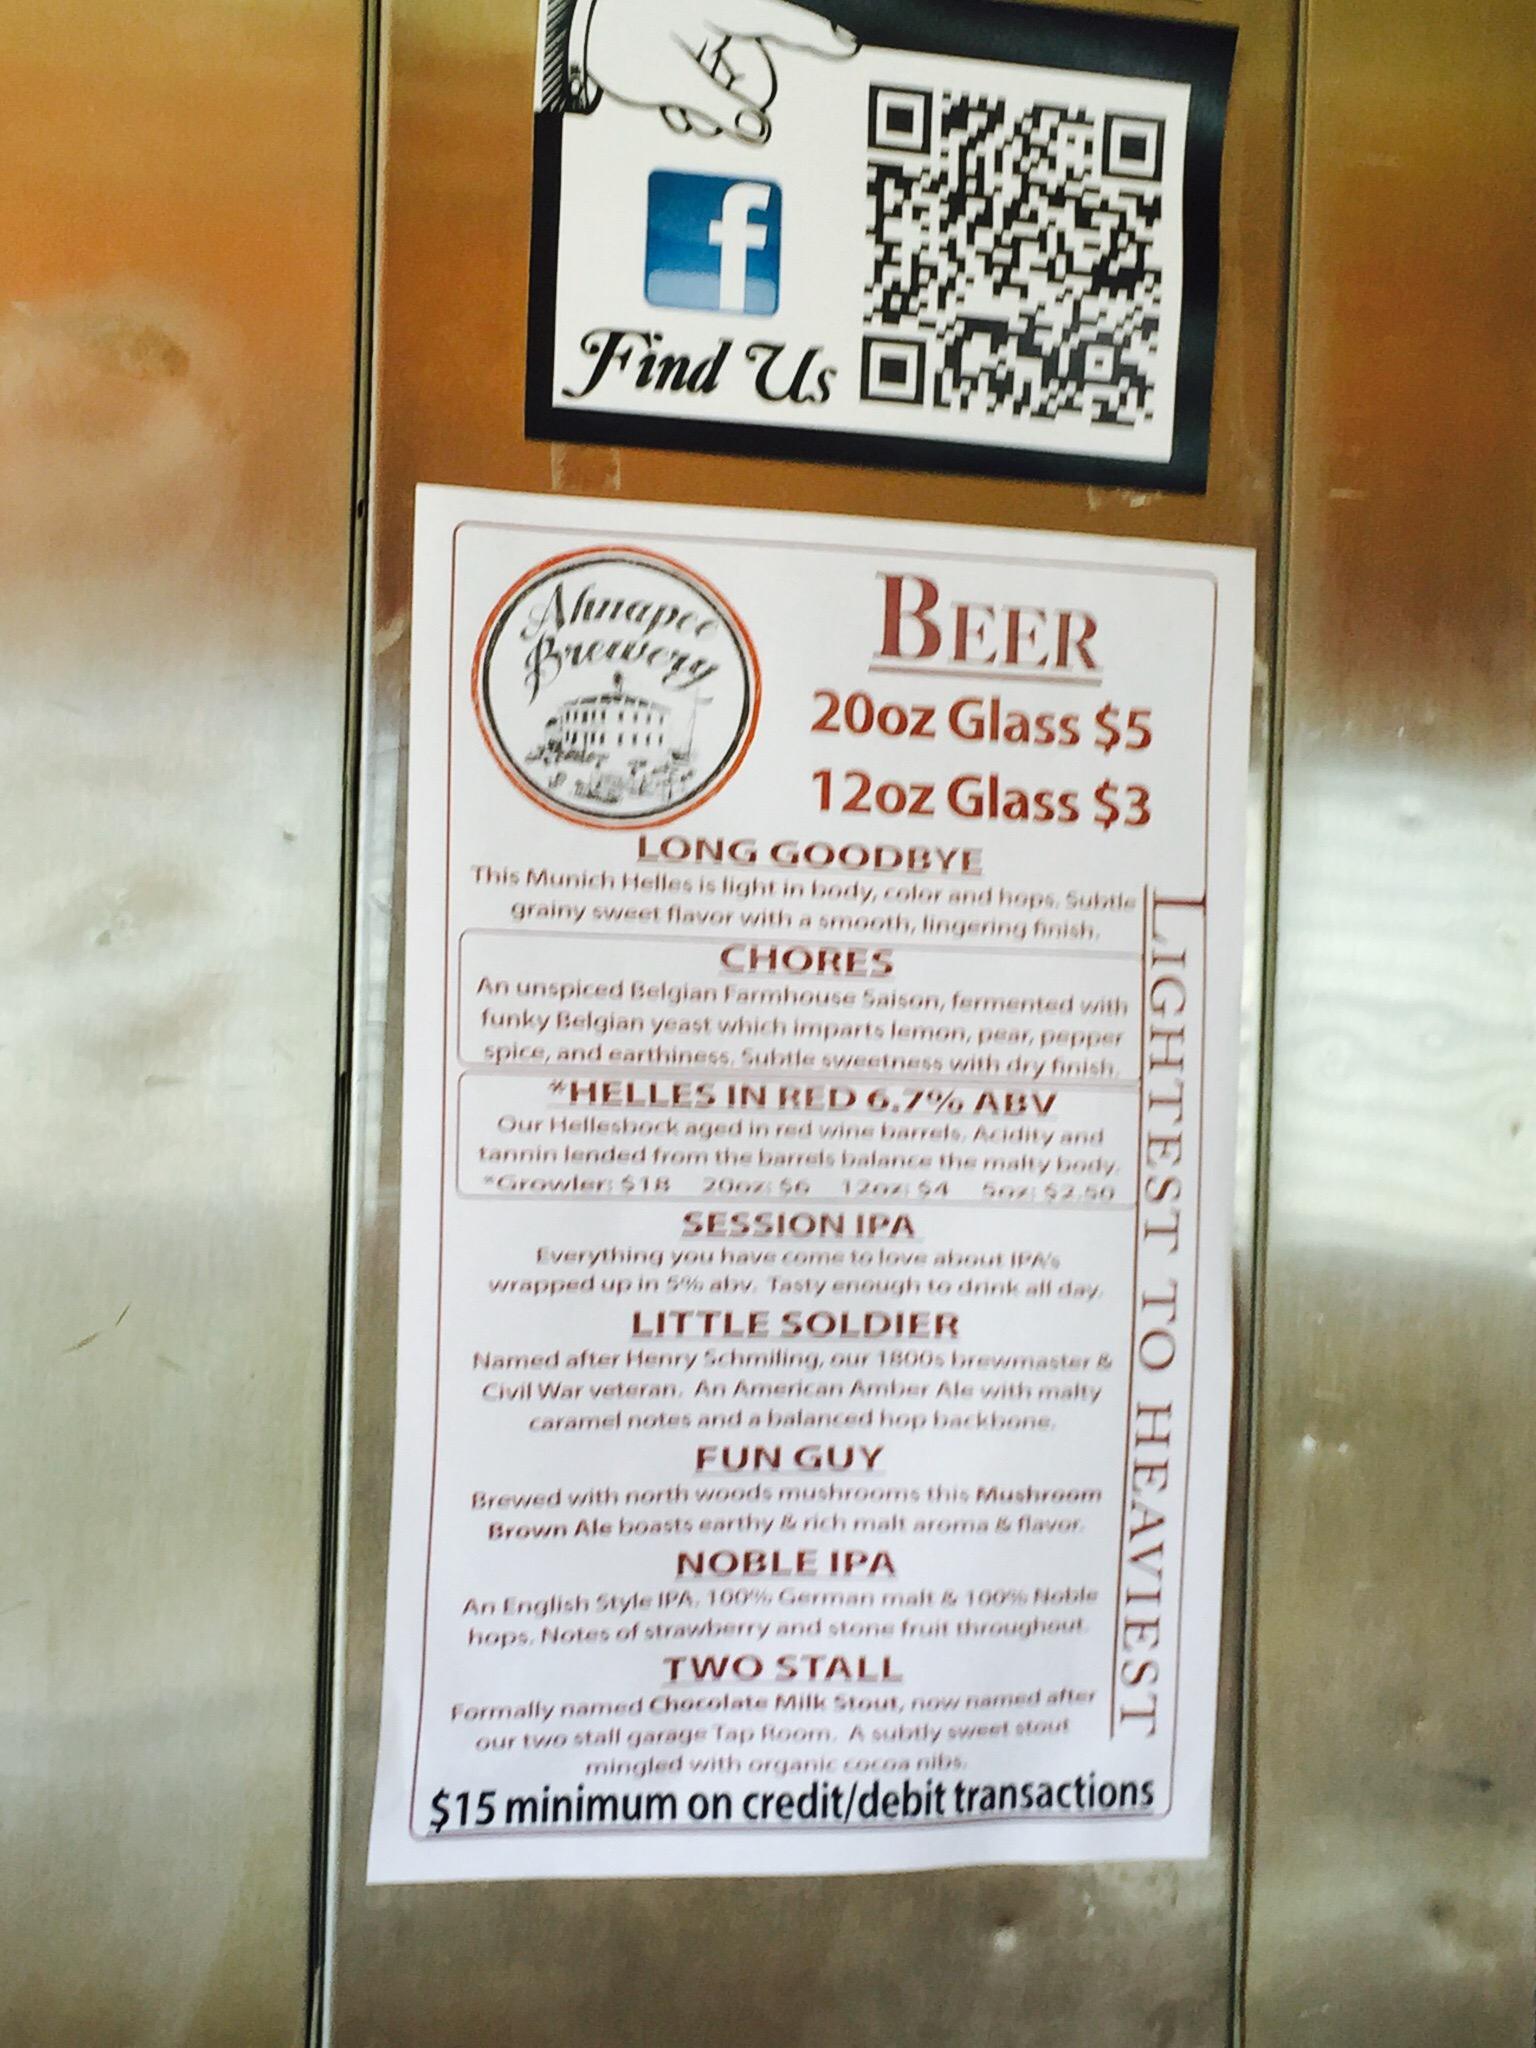 f
Find Us
Ahnapee
Brewery
BEER
20oz Glass $5
12oz Glass $3
LIGHTEST TO HEAVIEST
LONG GOODBYE
This Munich Helles is light in body, color and hops. Subtle
grainy sweet flavor with a smooth, lingering finish.
CHORES
An unspiced Belgian Farmhouse Saison, fermented with
funky Belgian yeast which imparts lemon, pear, pepper
spice, and earthiness. Subtle sweetness with dry finish.
*HELLES IN RED 6.7% ABV
Our Hellesbock aged in red wine barrels. Acidity and
tannin lended from the barrels balance the malty body.
*Growler: $18 20oz: $6 12oz: $4 5oz: $2.50
SESSION IPA
Everything you have come to love about IPA's
wrapped up in 5% abv. Tasty enough to drink all day.
LITTLE SOLDIER
Named after Henry Schmiling, our 1800s brewmaster &
Civil War veteran. An American Amber Ale with malty
caramel notes and a balanced hop backbone.
FUN GUY
Brewed with north woods mushrooms this Mushroom
Brown Ale boasts earthy & rich malt aroma & flavor.
NOBLE IPA
An English Style IPA, 100% German malt & 100% Noble
hops. Notes of strawberry and stone fruit throughout.
TWO STALL
Formally named Chocolate Milk Stout, now named after
our two stall garage Tap Room. A subtly sweet stout
mingled with organic cocoa nibs.
$15 minimum on credit/debit transactions